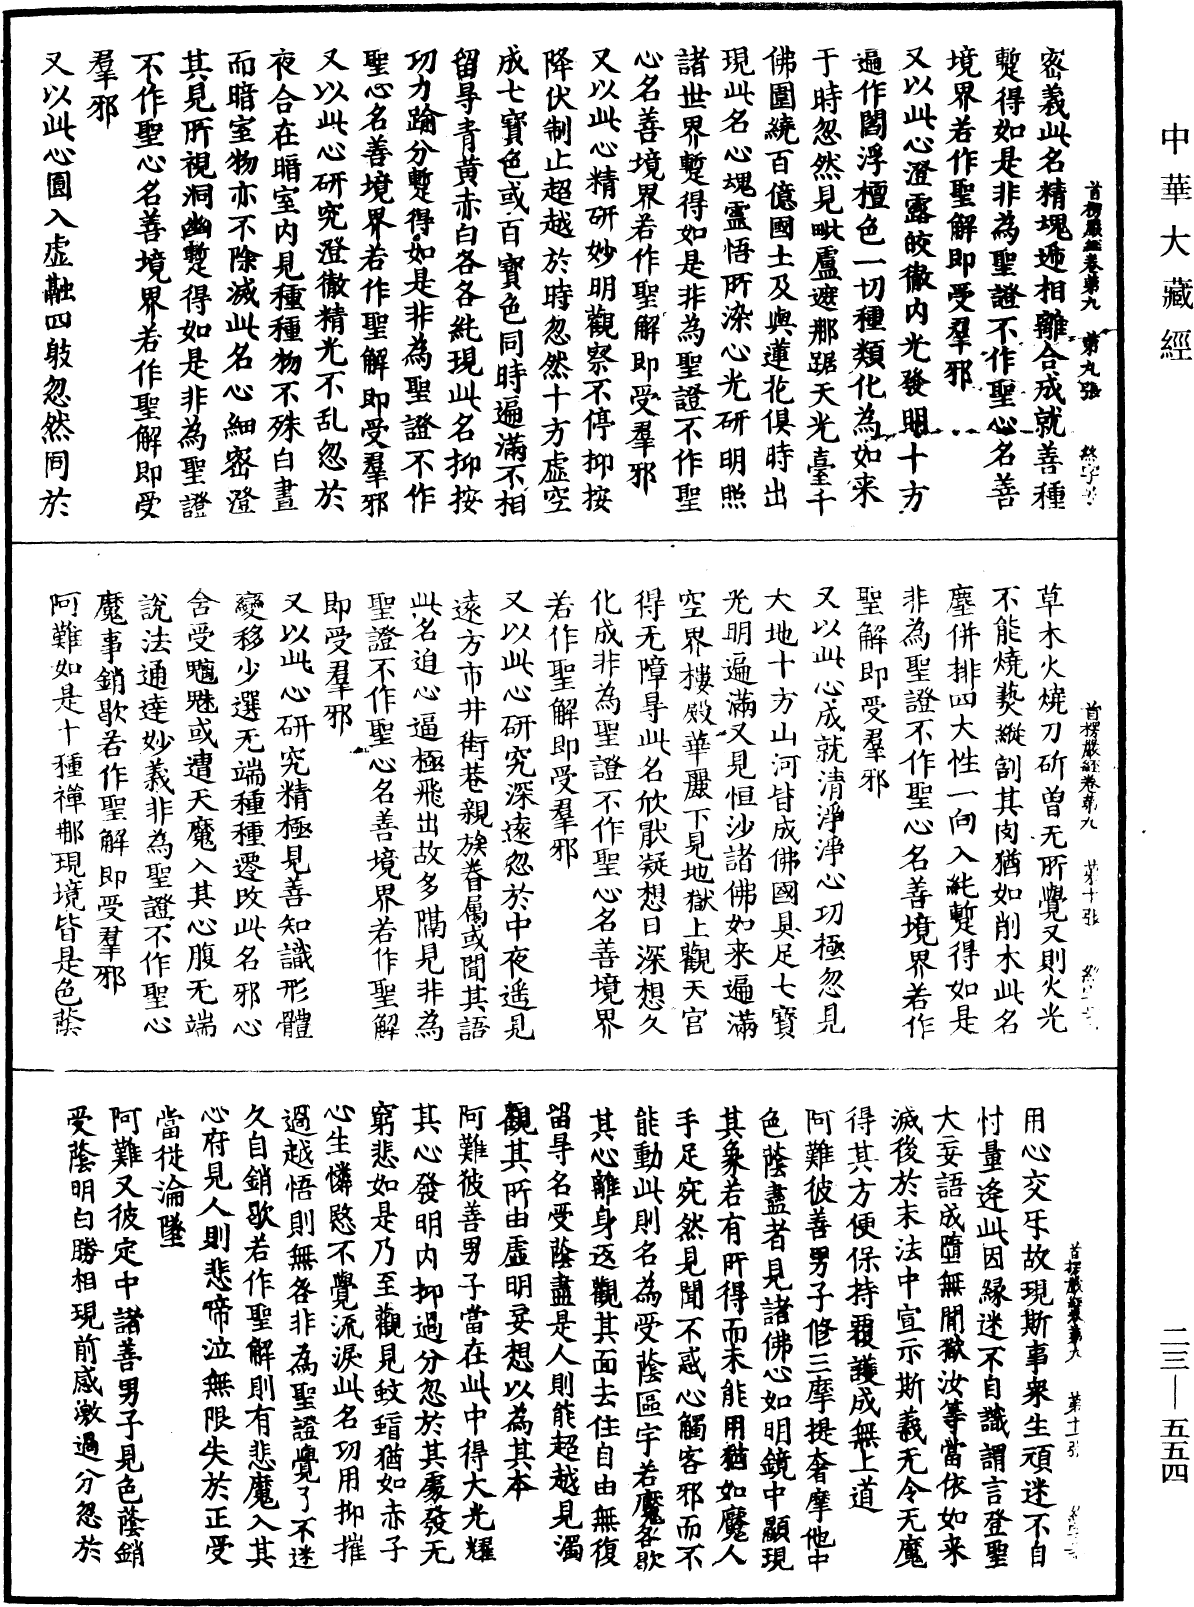 中華大藏經
首楞嚴經卷第九 第九張
密義此名精塊遞相離合成就善種
暫得如是非為聖證不作聖心名善
境界若作聖解即受羣邪
又以此心澄露皎徹內光發明十方
遍作閻浮檀色一切種類化為如来
于時忽然見毗盧遮那踞天光臺千
佛圍繞百億國土及與蓮花俱時出
現此名心魂靈悟所染心光研明照
諸世界暫得如是非為聖證不作聖
心名善境界若作聖解即受羣邪
又以此心精研妙明觀察不停抑按
降伏制止超越於時忽然十方虛空
成七寶色或百寶色同時遍滿不相
留㝵青黃赤白各各純現此名抑按
功力踰分暫得如是非為聖證不作
聖心名善境界若作聖解即受羣邪
又以此心研究澄徹精光不乱忽於
夜合在暗室內見種種物不殊白晝
而暗室物亦不除滅此名心細密澄
其見所視洞幽暫得如是非為聖證
不作聖心名善境界若作聖解即受
羣邪
又以此心圓入虛融四躰忽然同於
首楞嚴經卷第九 第十張
草木火燒刀斫曾无所覺又則火光
不能燒爇縱割其肉猶如削木此名
塵併排四大性一向入純暫得如是
非為聖證不作聖心名善境界若作
聖解即受羣邪
又以此心成就清淨淨心功極忽見
大地十方山河皆成佛國具足七寶
光明遍滿又見恒沙諸佛如来遍滿
空界樓殿華麗下見地獄上觀天宮
得无障㝵此名欣猒凝想日深想久
化成非為聖證不作聖心名善境界
若作聖解即受羣邪
又以此心研究深遠忽於中夜遥見
遠方市井街巷親族眷屬或聞其語
此名迫心逼極飛出故多隔見非為
聖證不作聖心名善境界若作聖解
即受羣邪
又以此心研究精極見善知識形體
變移少選无端種種遷改此名邪心
含受魑魅或遭天魔入其心腹无端
說法通達妙義非為聖證不作聖心
魔事銷歇若作聖解即受羣邪
阿難如是十種禪那現境皆是色蔭
首楞嚴經卷第九 第十一張
用心交㸦故現斯事衆生頑迷不自
忖量逢此因緣迷不自識謂言登聖
大妄語成墮無閒獄汝等當依如来
滅後於末法中宣示斯義无令天魔
得其方便保持覆護成無上道
阿難彼善男子修三摩提奢摩他中
色蔭盡者見諸佛心如明鏡中顯現
其象若有所得而未能用猶如魘人
手足宛然見聞不惑心觸客邪而不
能動此則名為受蔭區宇若魘咎歇
其心離身返觀其面去住自由無復
留㝵名受蔭盡是人則能超越見濁
觀其所由虛明妄想以為其本
阿難彼善男子當在此中得大光耀
其心發明內抑過分忽於其處發无
窮悲如是乃至觀見蚊䖟猶如赤子
心生憐愍不覺流淚此名功用抑摧
過越悟則無咎非為聖證覺了不迷
久自銷歇若作聖解則有悲魔入其
心府見人則悲啼泣無限失於正受
當從淪墜
阿難又彼定中諸善男子見色蔭銷
受蔭明白勝相現前感激過分忽於
二三—五五四